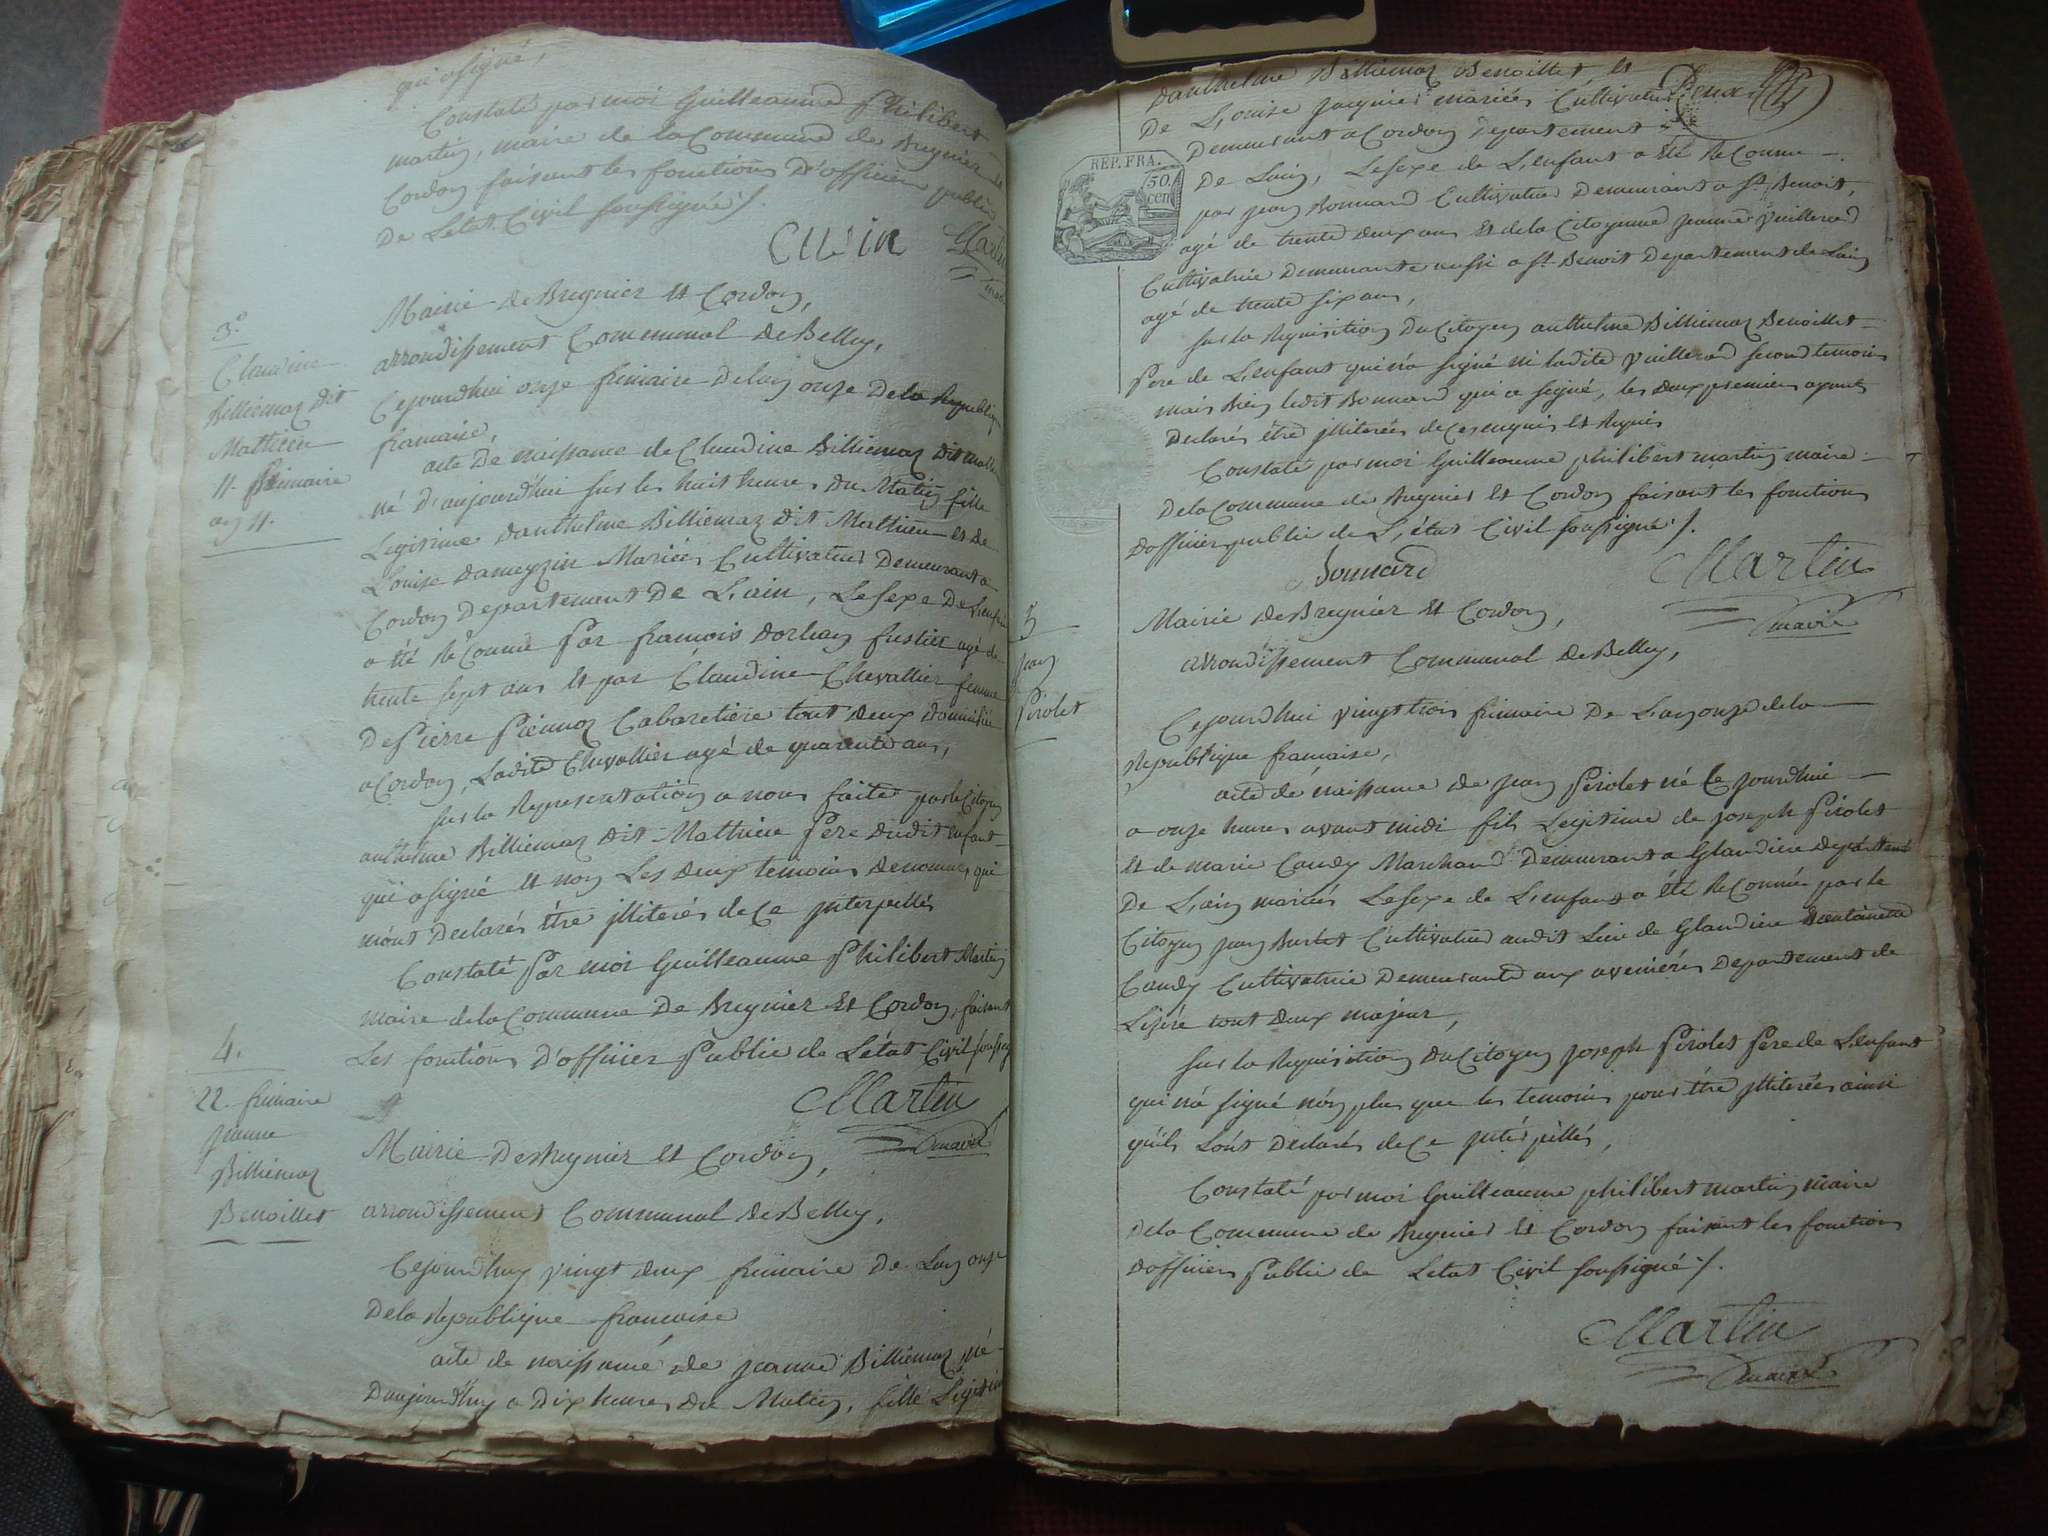 qui a signé,
Constaté par moi Guilleaume Philibert
martin, maire de la Commune de Bregnier &
Cordon faisant les fonctions D'officier public
De L'état Civil soussigné ./.
CUSIN Martin
maire
3.e
Claudine
Billiemaz dit
Mathieu
11. frimaire
an 11.
Mairie de Bregnier et Cordon,
arrondissement Communal de Belley,
Cejourd'hui onze frimaire De lan onze De la Republique
francaise,
acte De naissance de Claudine Billiemaz dit Mathieu
né D'aujourd'hui sur les huit heures du Matin fille
Legitime d'anthelme Billiemaz dit Mathieu et de
Louise dameyzin Mariés Cultivateur Demeurant a
Cordon Departement De L'ain, Le sexe De L'enfant
a été Reconnu Par francois dorhan fustier agé de
trente sept ans et par Claudine Chevallier femme
De Pierre Cabaretiere tout deux domicilié
a Cordon, Ladite Chevallier agé de quarente ans,
sur la Representation a nous faite par le Citoyen
anthelme Billiemaz dit Mathieu Pere dudit enfant
qui a signé et non Les deux temoins denommés, qui
m'ont Declarés étre illiterés de ce interpellés
Constaté Par moi Guilleaume Philibert Martin
maire de la Commune De Bregnier et Cordon, faisant
Les fonctions D'officier Public de L'état Civil soussigné
Martin
maire
4.
22. frimaire
jeanne
Billiemaz
Benoillet
Mairie De Bregnier et Cordon,
arrondissement Communal de Belley,
Cejourd'huy vingt deux frimaire De Lan onze
De la Republique francaise
acte de naissance de jeanne Billiemaz né
D'aujourd'huy a Dix heures du Matin, fille Legitime
d'anthelme Billiemaz Benoillet, et
De Louise jacquier mariés Cultivateur
Demeurant a Cordon Departement
REP. FRA.
50 cen
De L'ain, Le sexe de L'enfant a été Reconnu
par jean Bonnard Cultivateur Demeurant a St. Benoit,
agé de trente deux ans et de la Citoyenne jeanne Vuillerod
Cultivatrice Demeurante aussi a St. Benoit Departement de Lain
agé de trente six ans,
sur la Requisition du Citoyen anthelme Billiemaz Benoillet
Pere de L'enfant qui n'a signé ni ladite Vuillerod second temoin
mais bien ledit Bonnard qui a signé, les deux premiers ayants
Declarés étre illiterés de ce enquis et Requis
Constaté par moi Guilleaume philibert martin maire
De la Commune de Bregnier et Cordon faisant les fonctions
D'officier public de L'état Civil soussigné ./.
Bonnard Martin
maire
5
jean
Pirolet
Mairie de Bregnier et Cordon,
arrondissement Communal de Belley,
Cejourd'hui vingt trois frimaire De L'an onze de la
Republique francaise,
acte de naissance de jean Pirolet né Cejourd'hui
a onze heures avant midi fils Legitime de joseph Pirolet
et de marie Candy Marchand Demeurant a Glandieu departement
De L'ain mariés Le sexe de L'enfant a été Reconnu par le
Citoyen jean Burlet Cultivateur audit Lieu de Glandieu
Candy Cultivatrice Demeurante aux avenières Departement de
L'isère tout deux majeur,
sur la Requisition du Citoyen joseph Pirolet Pere de L'enfant
qui n'a signé non plus que les temoins pour étre illiterés ainsi
qu'ils L'ont Declarés de ce interpellés,
Constaté par moi Guilleaume philibert martin maire
De la Commune de Bregnier et Cordon faisant les fonctions
D'officier Public de L'état Civil soussigné ./.
Martin
maire